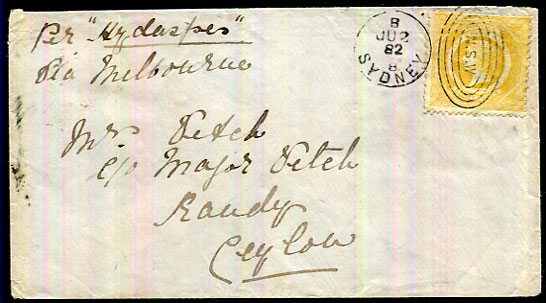 Per "Hydaspes"
Via Melbourne
B
JU 2
82
8
SYDNEY
N.S.W
Mrs Vetch
c/o Major Vetch
Kandy
Ceylon